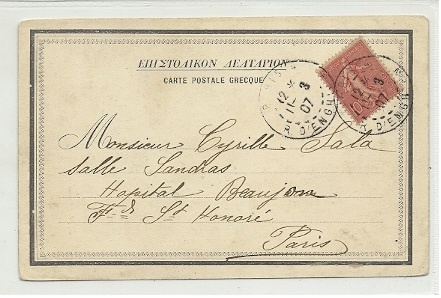 ΕΠΙΣΤΟΛΙΚΟΝ ΔΕΛΤΑΡΙΟΝ
CARTE POSTALE GRECQUE
12
11 - 3
07
R. D'ENGH
Monsieur Cyrille Sala
Salle Sandras
Hopital Beaujon
Fg de St Honoré
Paris